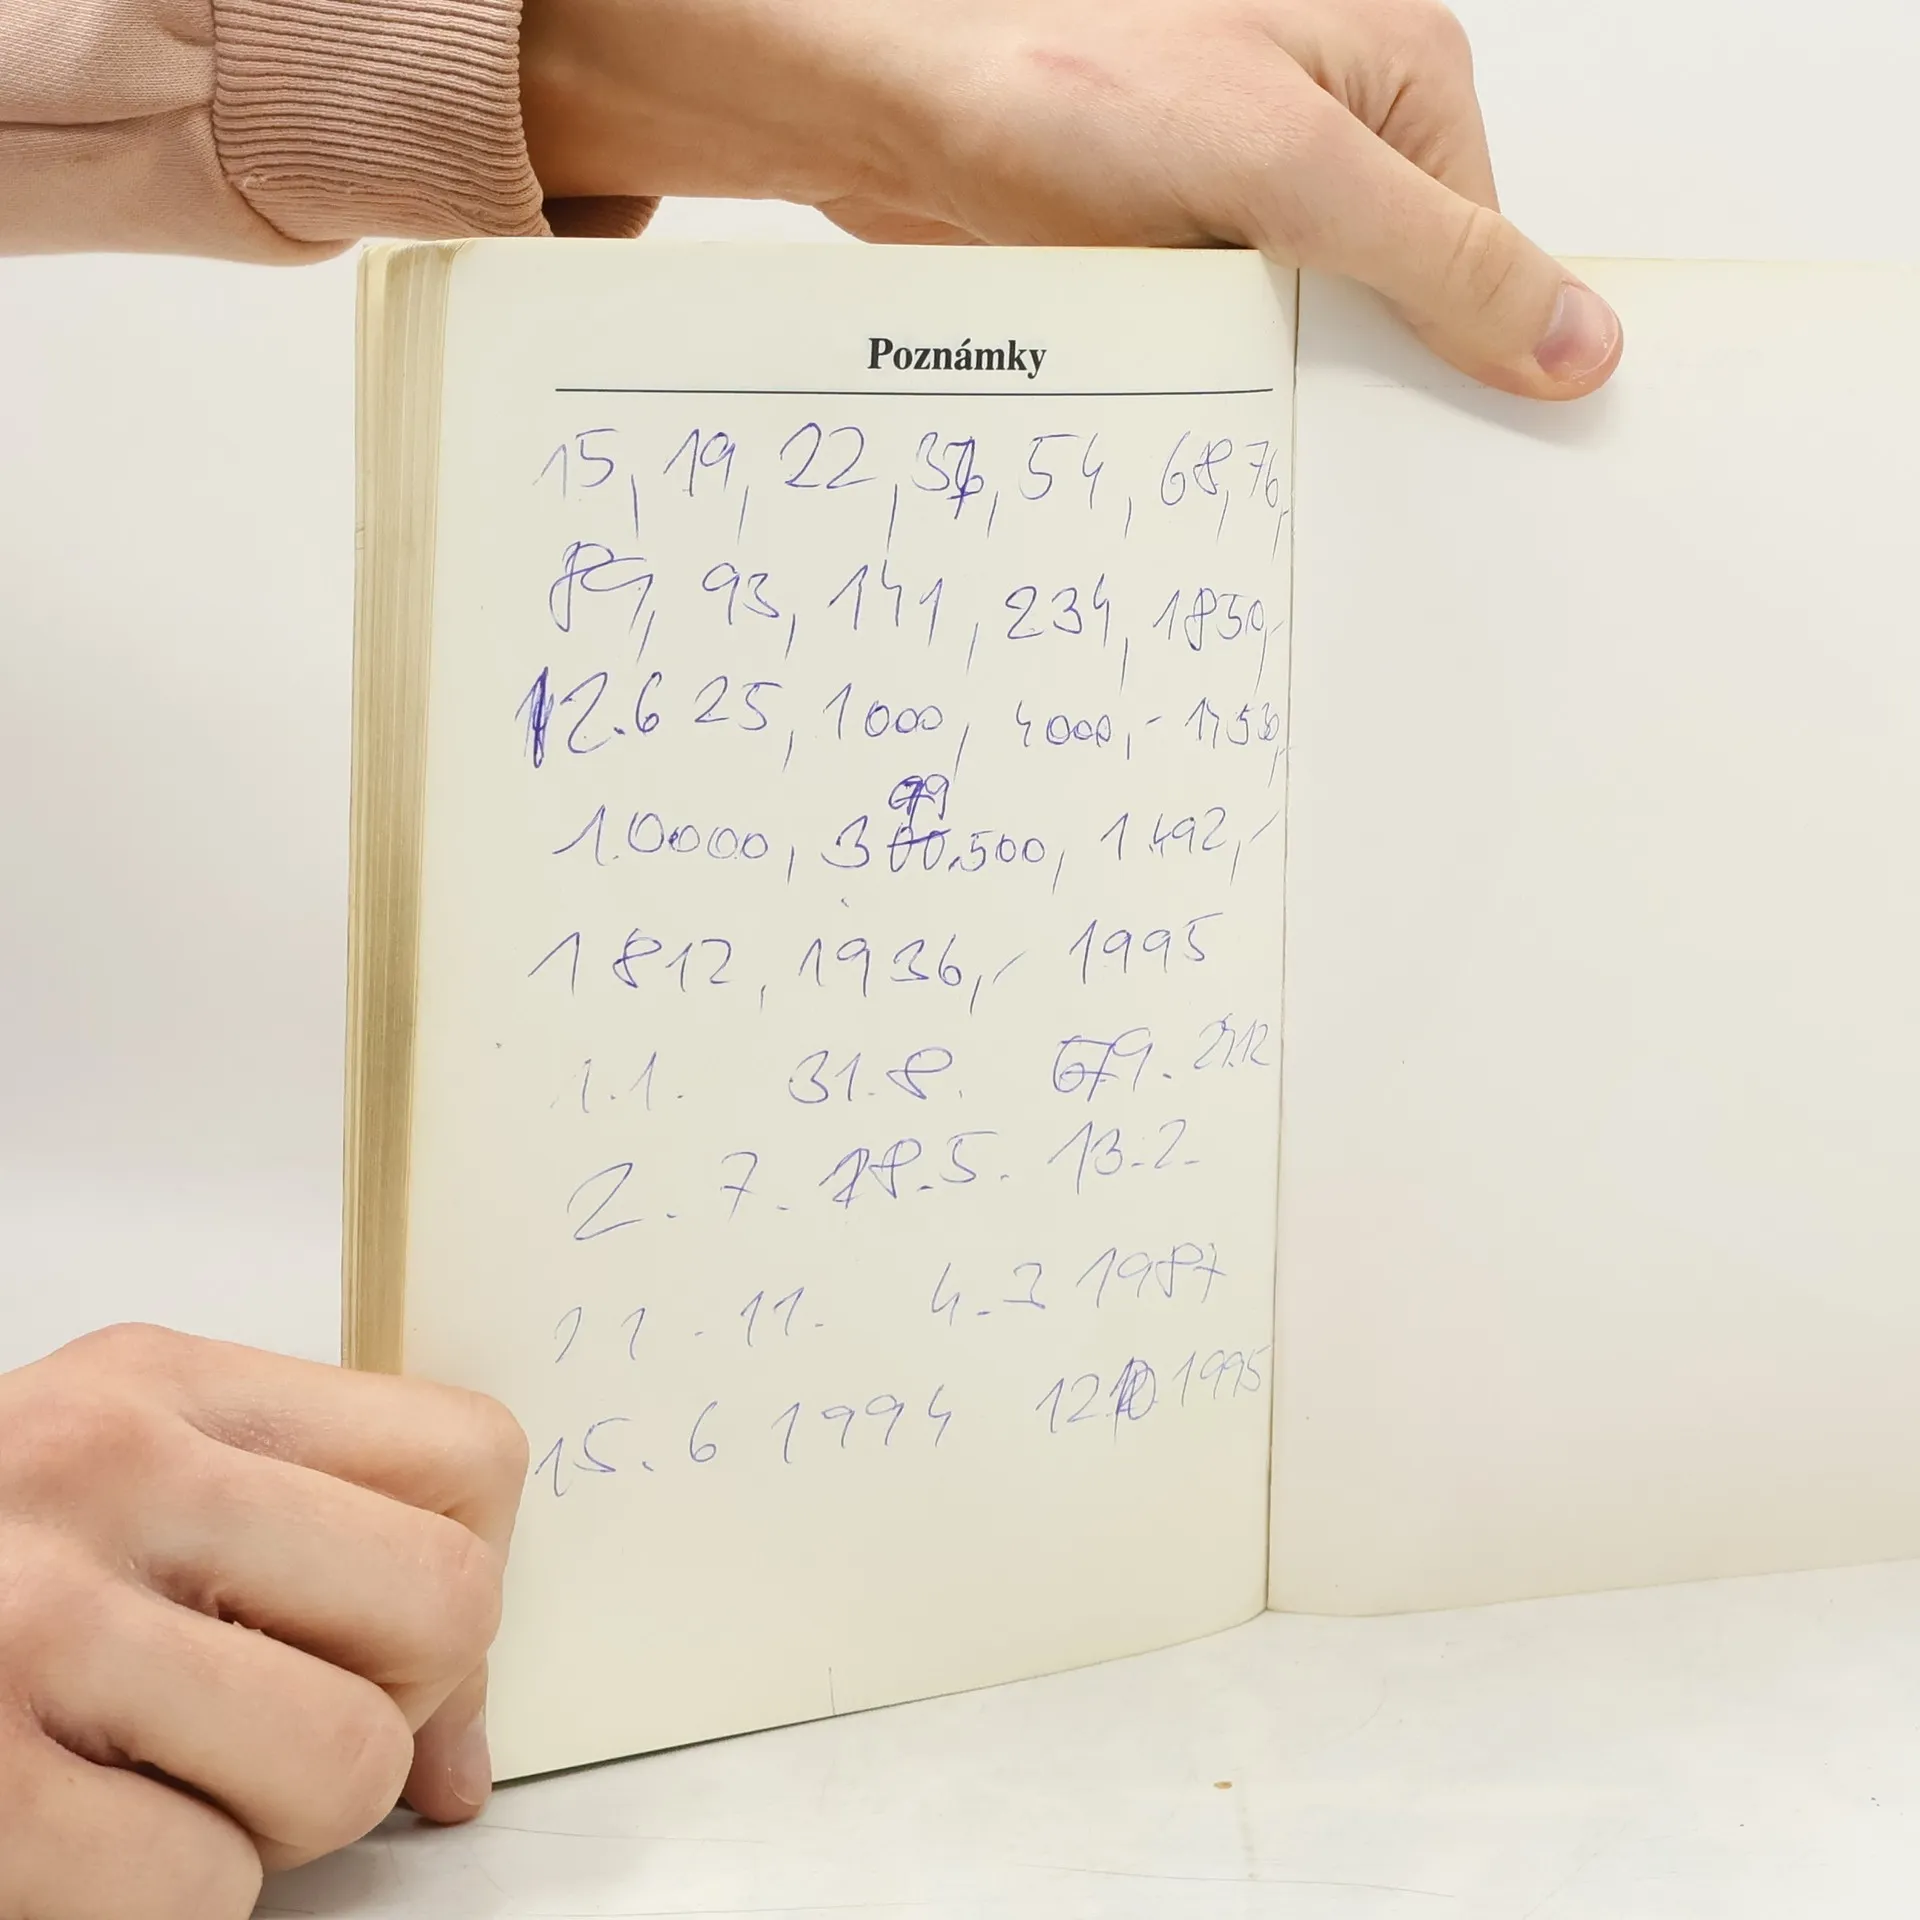 Poznámky
15, 19, 22, 36, 54, 68, 76,-
89, 93, 141, 234, 1850,-
12.625, 1000, 4000,- 1450,
1.0000, 399.500, 1.492,-
1812, 1936,- 1995
1.1. 31.8. 6.9. 21.12
2. 7. 18.5. 13.2.
11. 11. 4.3 1987
15. 6 1994 12 10 1995